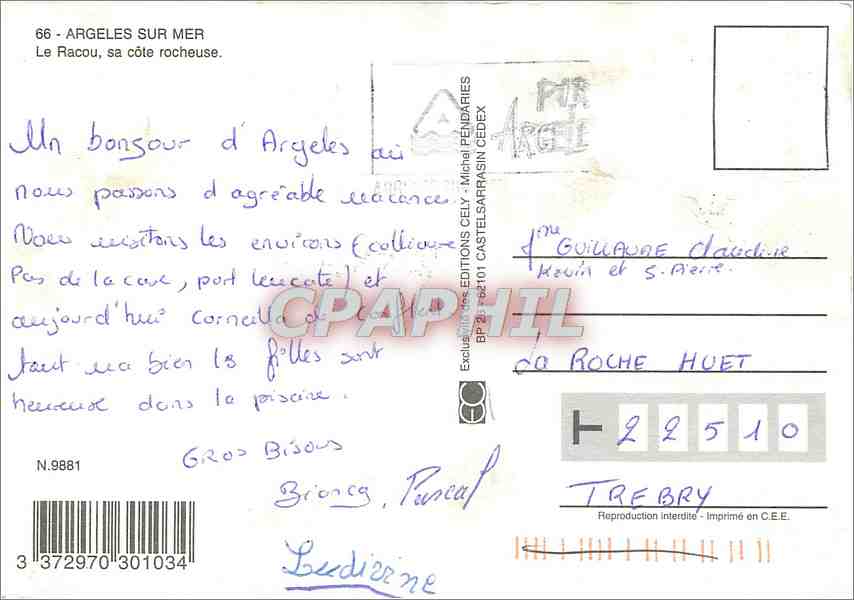 66 - ARGELES SUR MER
Le Racou, sa côte rocheuse.
Un bonjour d'Argeles où
nous passons d'agréable vacances.
Nous visitons les environs (collioure
Pas de la case, port leucate) et
aujourd'hui Corneilla de Conflent
tout va bien ls filles sont
heureuse dans la piscine.
GROS BISOUS
Pascal
Ludivine
N.9881
3 372970 301034
Exclusivité des EDITIONS CELY - Michel PENDARIES
BP 26 - 82101 CASTELSARRASIN CEDEX
ARGELE
CPAPHIL
GUILLAUME Claudine
Kevin et S. Pierre.
La ROCHE HUET
22510
TREBRY
Reproduction interdite - Imprimé en C.E.E.